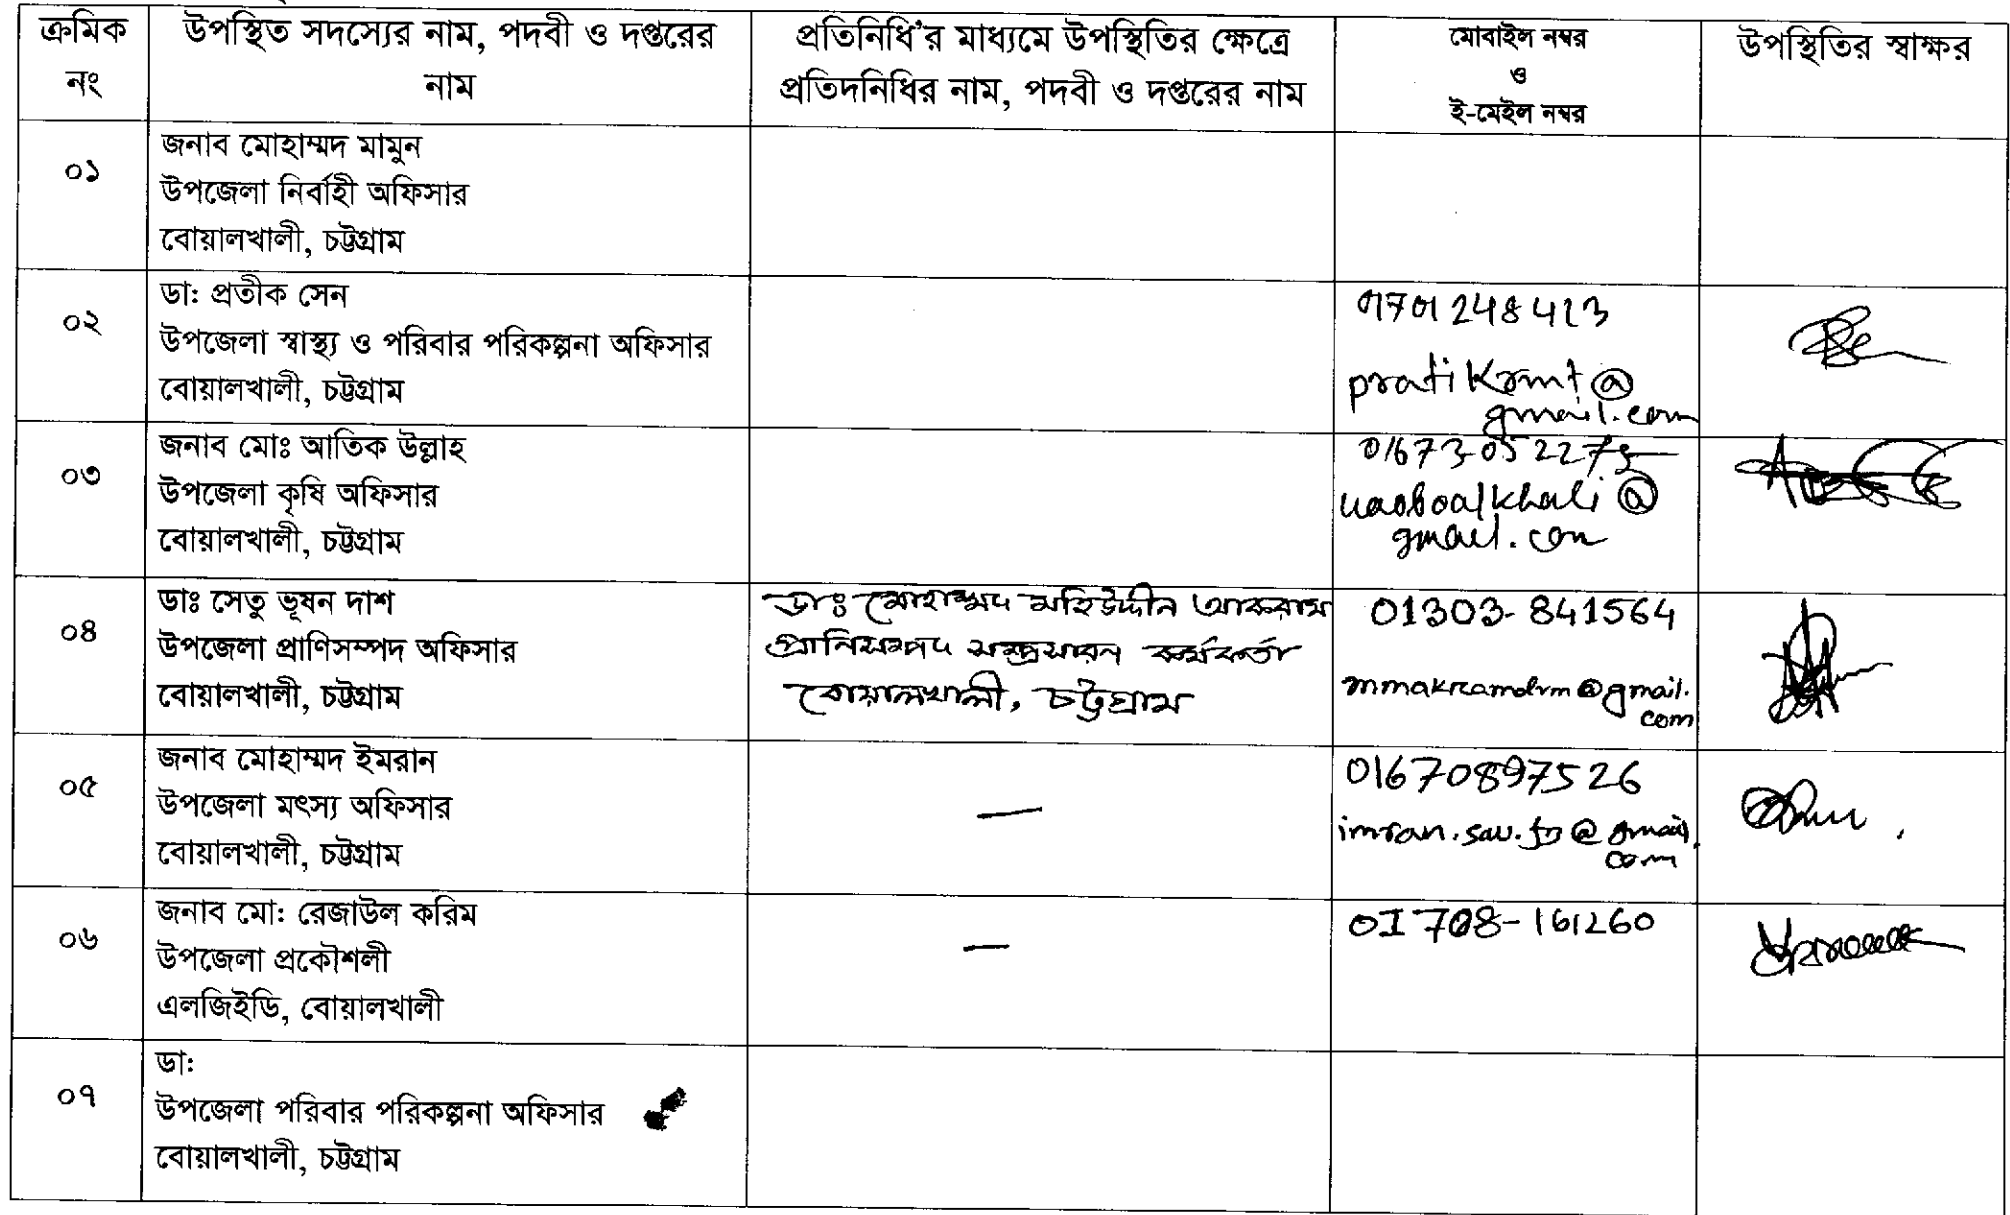 ক্রমিক নং
উপস্থিত সদস্যের নাম, পদবী ও দপ্তরের নাম
প্রতিনিধি'র মাধ্যমে উপস্থিতির ক্ষেত্রে প্রতিদনিধির নাম, পদবী ও দপ্তরের নাম
মোবাইল নম্বর
ও
ই-মেইল নম্বর
উপস্থিতির স্বাক্ষর
০১
জনাব মোহাম্মদ মামুন
উপজেলা নির্বাহী অফিসার
বোয়ালখালী, চট্টগ্রাম
০২
ডা: প্রতীক সেন
উপজেলা স্বাস্থ্য ও পরিবার পরিকল্পনা অফিসার
বোয়ালখালী, চট্টগ্রাম
gmail.com
০৩
জনাব মোঃ আতিক উল্লাহ
উপজেলা কৃষি অফিসার
বোয়ালখালী, চট্টগ্রাম
uaoboalkhali@
gmail.com
০৪
ডাঃ সেতু ভূষন দাশ
উপজেলা প্রাণিসম্পদ অফিসার
বোয়ালখালী, চট্টগ্রাম
ডাঃ মোহাম্মদ মহিউদ্দীন আকরাম
প্রানিসম্পদ সম্প্রসারন কর্মকর্তা
বোয়ালখালী, চট্টগ্রাম
01303-841564
০৫
জনাব মোহাম্মদ ইমরান
উপজেলা মৎস্য অফিসার
বোয়ালখালী, চট্টগ্রাম
—
01670897526
০৬
জনাব মো: রেজাউল করিম
উপজেলা প্রকৌশলী
এলজিইডি, বোয়ালখালী
—
01708-161260
০৭
ডা:
উপজেলা পরিবার পরিকল্পনা অফিসার
বোয়ালখালী, চট্টগ্রাম